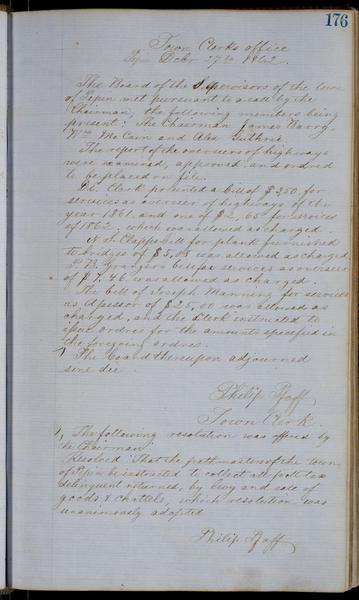 176
Town Clerks office
Pepin Decbr 27th 1862.
The Board of the Supervisors of the town
of Pepin met pursuant to a call by the
Chairman, the following members being
present: the Chairman James Barry,
Wm McCain and Alex Guthrie.
The report of the overseers of highways
were examined, approved and ordred
to be placed on file.
Clark presented a bill of $2,50, for
services as overseer of highways of the
year 1861. and one of $2,65 for services
of 1862, which was allowed as charged.
N. S. Clapps bill for plank furnished
to bridges of $5,08 was allowed as charged
B. Grangers bill for services as overseer
of $7,46 was allowed as charged.
The bill of Joseph Manning for services
as Assessor of $25,00 was allowed as
charged, and the Clerk instructed to
issue ordres for the amounts specified in
the foregoing ordres.
The board thereupon adjourned
sine dee
Philip Pfaff
Town Clerk.
The following resolution was offered by
the Chairman
Resolved That the pathmasters of the town
of Pepin be instructed to collect all poll tax
delinquent returned, by levy and sale of
goods & chattels, which resolution was
unanimously adopted
Philip Pfaff